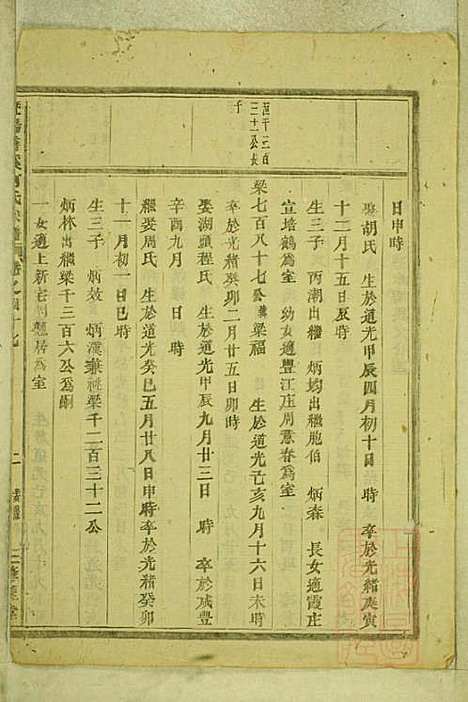 日申時
娶胡氏 生於道光甲辰四月初十日 時 卒於光緒庚寅
十二月十五日辰時
生三子 丙潮出繼 炳均出繼胞伯 炳森 長女適霞庄
宣培鶴為室 幼女適豐江庄周意春為室
梁七百八十七公諱梁福 生於道光己亥九月十六日未時
卒於光緒癸卯二月廿五日卯時
娶湖頭程氏 生於道光甲辰九月廿三日 時 卒於咸豐
辛酉九月 日 時
繼娶周氏 生於道光癸巳五月廿八日申時卒於光緒癸卯
十一月初一日巳時
生三子 炳效 炳漢兼祧梁千二百三十二公
炳林出繼梁千三百六公為嗣
一女適上新宅 為室
三十一公長
子